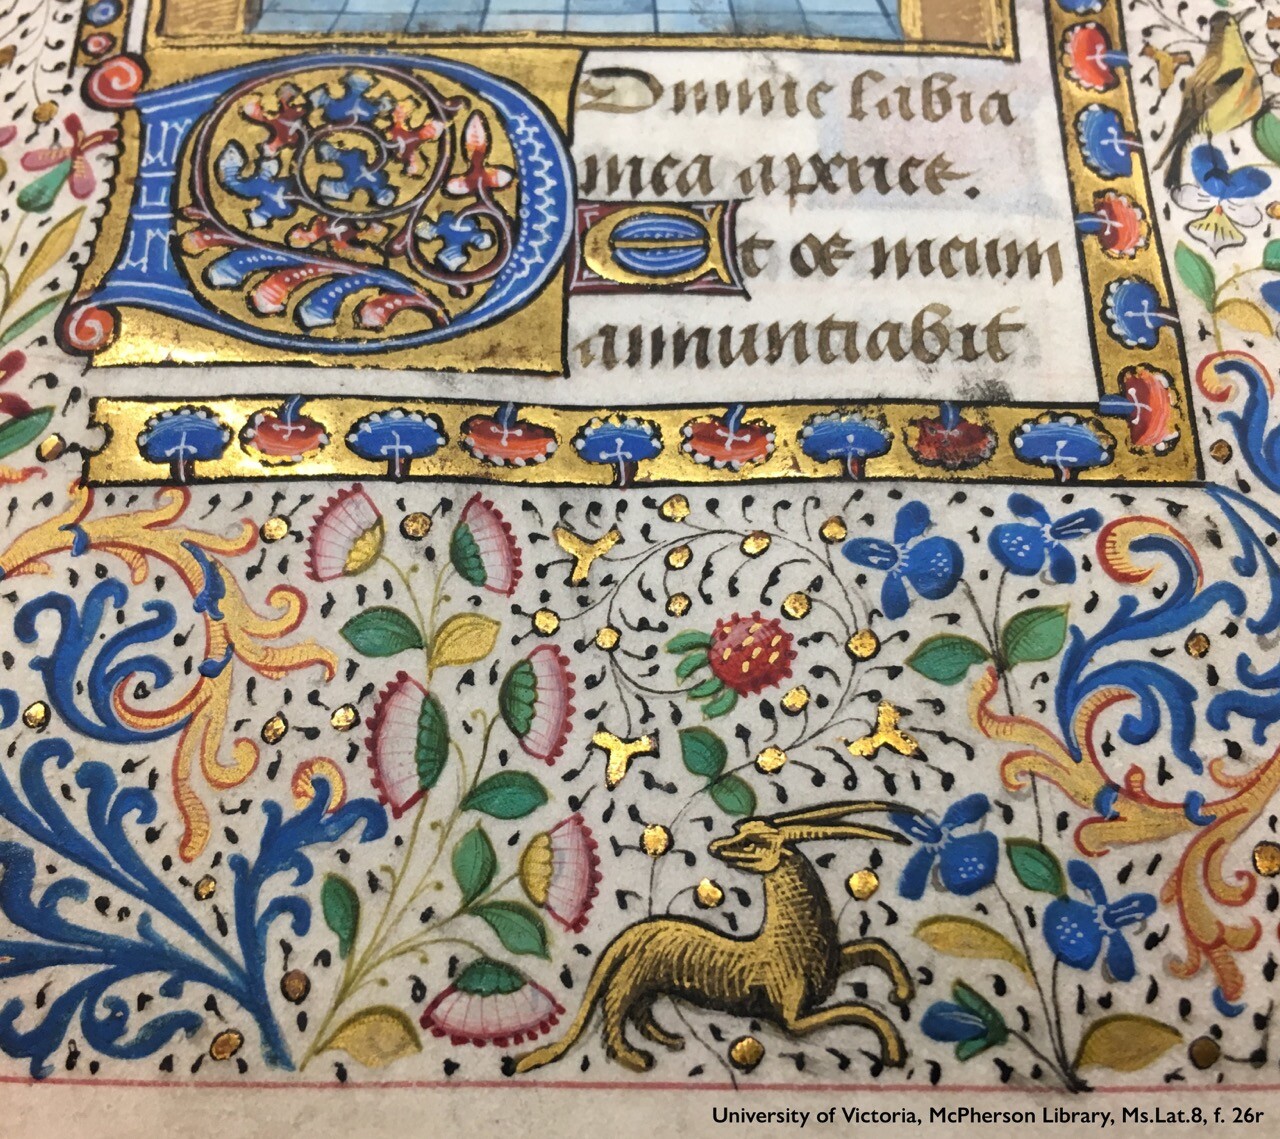 DOmine labia
mea aperies.
Et os meum
annuntiabit
University of Victoria, McPherson Library, Ms.Lat.8, f. 26r